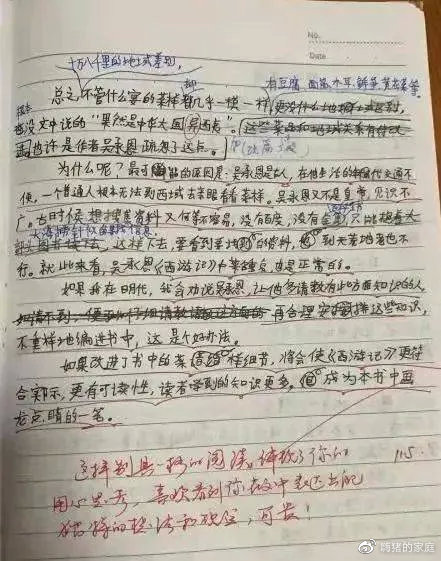 No.
Date
十万八千里的地域差别,
有豆腐 面筋 木耳 鲜笋 黄花菜等
总之,不管什么宴的菜样都几乎一模一样,
也没文中说的“果然是中华大国,异西夷”。
也许是作者吴承恩疏忽了这点。
为什么呢?最可能的原因是:吴承恩是古人,在他生活的明代交通不
便,一个普通人根本无法到西域去亲眼看看菜样。吴承恩又不是皇帝,见识不
广。古时候想搜集资料又何等不容易,没有百度,没有
大海捞针似的
这样下去,要看到当地的资料,到天荒地老也不
行。就此来看,吴承恩《西游记》中菜重复也是正常的。
如果我在明代,我会劝说吴承恩,让他多请教有此方面知识的人
再合理安排这些知识,
不重样地编进书中,这是个好办法。
如果改进了书中的菜样细节,将会使《西游记》更符
合实际,更有可读性,读者学到的知识更多,成为本书中画
龙点睛的一笔。
这样别具一格的阅读,体现了你的
用心思考,喜欢看到你在文中表达出的
独特的想法和观点,可贵!
11.5
@嗨猪的家庭